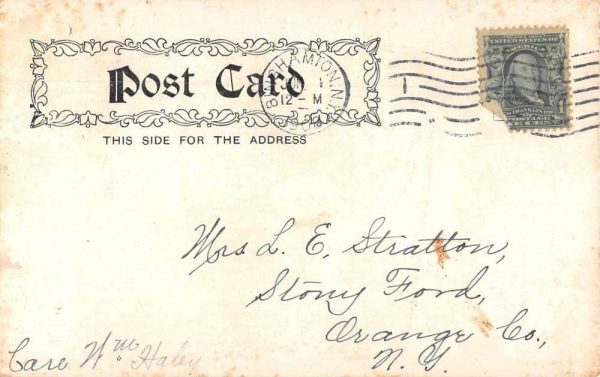 Post Card
THIS SIDE FOR THE ADDRESS
BINGHAMTON, N.Y.
12 - M
UNITED STATES OF
AMERICA
FRANKLIN
Mrs L. E. Stratton,
Stony Ford,
Orange Co.,
N. Y.
Care Wm Haley